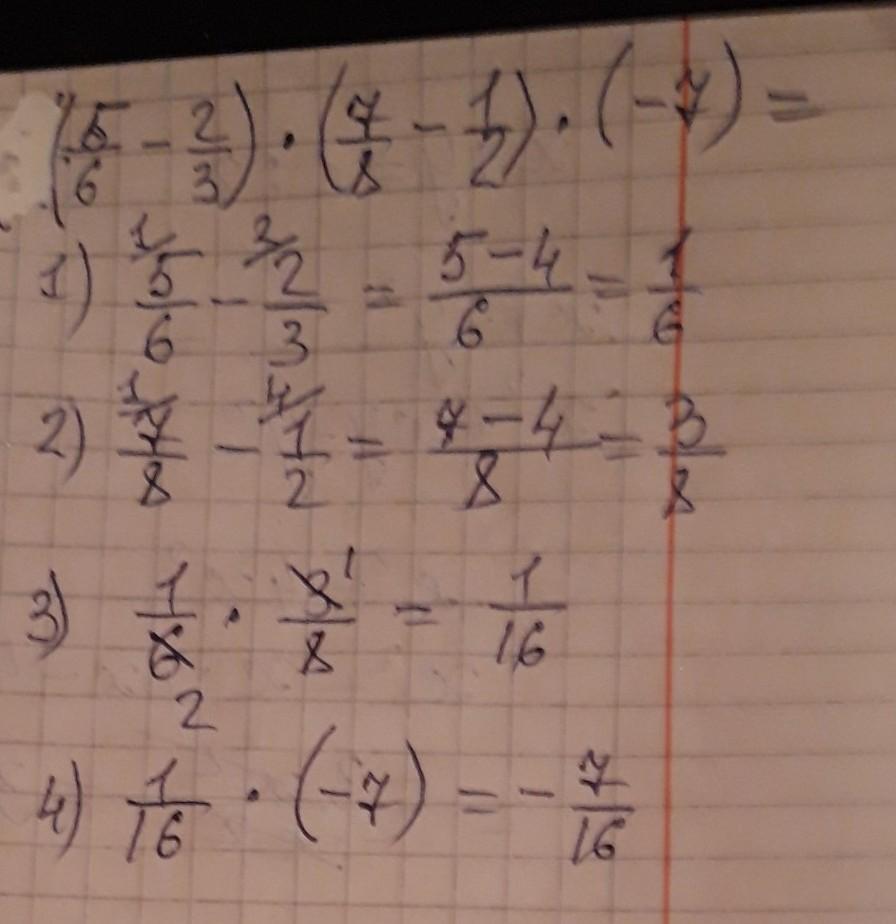 (5/6 - 2/3) · (7/8 - 1/2) · (-7) =
1) 1/ 5/6 - 2/ 2/3 = (5-4)/6 = 1/6
2) 1/ 7/8 - 4/ 1/2 = (7-4)/8 = 3/8
3) 1/6 · 3/8 1 = 1/16
2
4) 1/16 · (-7) = - 7/16